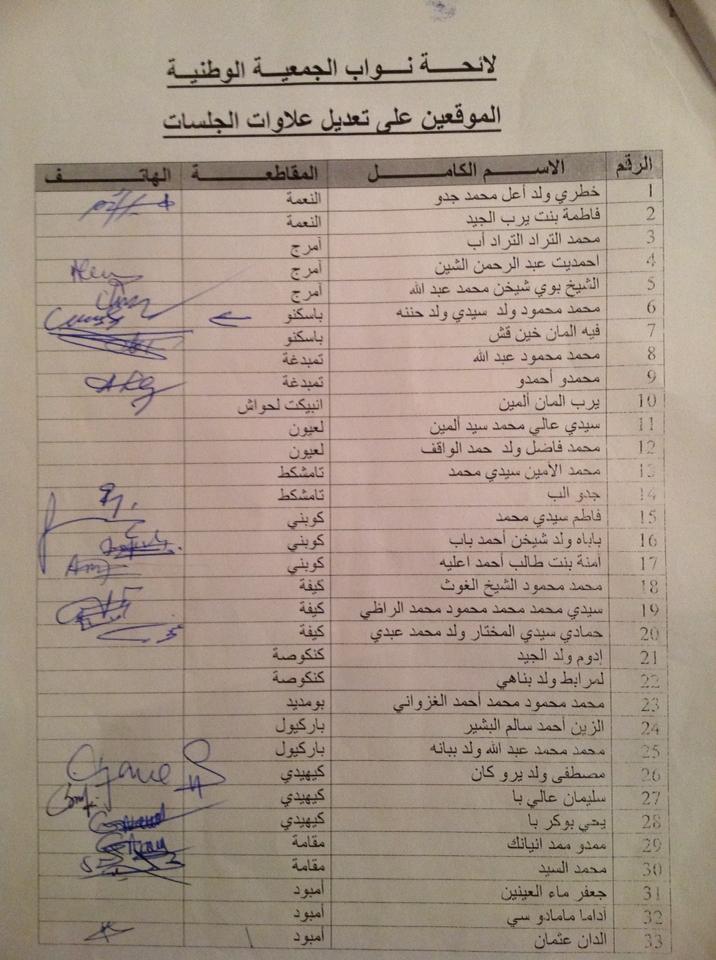 لائحـــة نـــواب الجمعيـــة الوطنيـــة
الموقعين على تعديل علاوات الجلسات
الرقم الاســـم الكامـــل المقاطعـــة الهاتـــف
1 خطري ولد أعل محمد جدو النعمة
2 فاطمة بنت يرب الجيد النعمة
3 محمد التراد التراد أب أمرج
4 احمديت عبد الرحمن الشين أمرج
5 الشيخ بوي شيخن محمد عبد الله أمرج
6 محمد محمود ولد سيدي ولد حننه باسكنو
7 فيه المان خين قش باسكنو
8 محمد محمود عبد الله تمبدغة
9 محمدو أحمدو تمبدغة
10 يرب المان ألمين انبيكت لحواش
11 سيدي عالي محمد سيد ألمين لعيون
12 محمد فاضل ولد حمد الواقف لعيون
13 محمد الأمين سيدي محمد تامشكط
14 جدو الب تامشكط
15 فاطم سيدي محمد كوبني
16 باباه ولد شيخن أحمد باب كوبني
17 أمنة بنت طالب أحمد اعليه كوبني
18 محمد محمود الشيخ الغوث كيفة
19 سيدي محمد محمد محمود محمد الراظي كيفة
20 حمادي سيدي المختار ولد محمد عبدي كيفة
21 إدوم ولد الجيد كنكوصة
22 لمرابط ولد بناهي كنكوصة
23 محمد محمود محمد أحمد الغزواني بومديد
24 الزين أحمد سالم البشير باركيول
25 محمد محمد عبد الله ولد ببانه باركيول
26 مصطفى ولد يرو كان كيهيدي
27 سليمان عالي با كيهيدي
28 يحي بوكر با كيهيدي
29 ممدو ممد انيانك مقامة
30 محمد السيد مقامة
31 جعفر ماء العينين أمبود
32 آداما مامادو سي أمبود
33 الدان عثمان أمبود